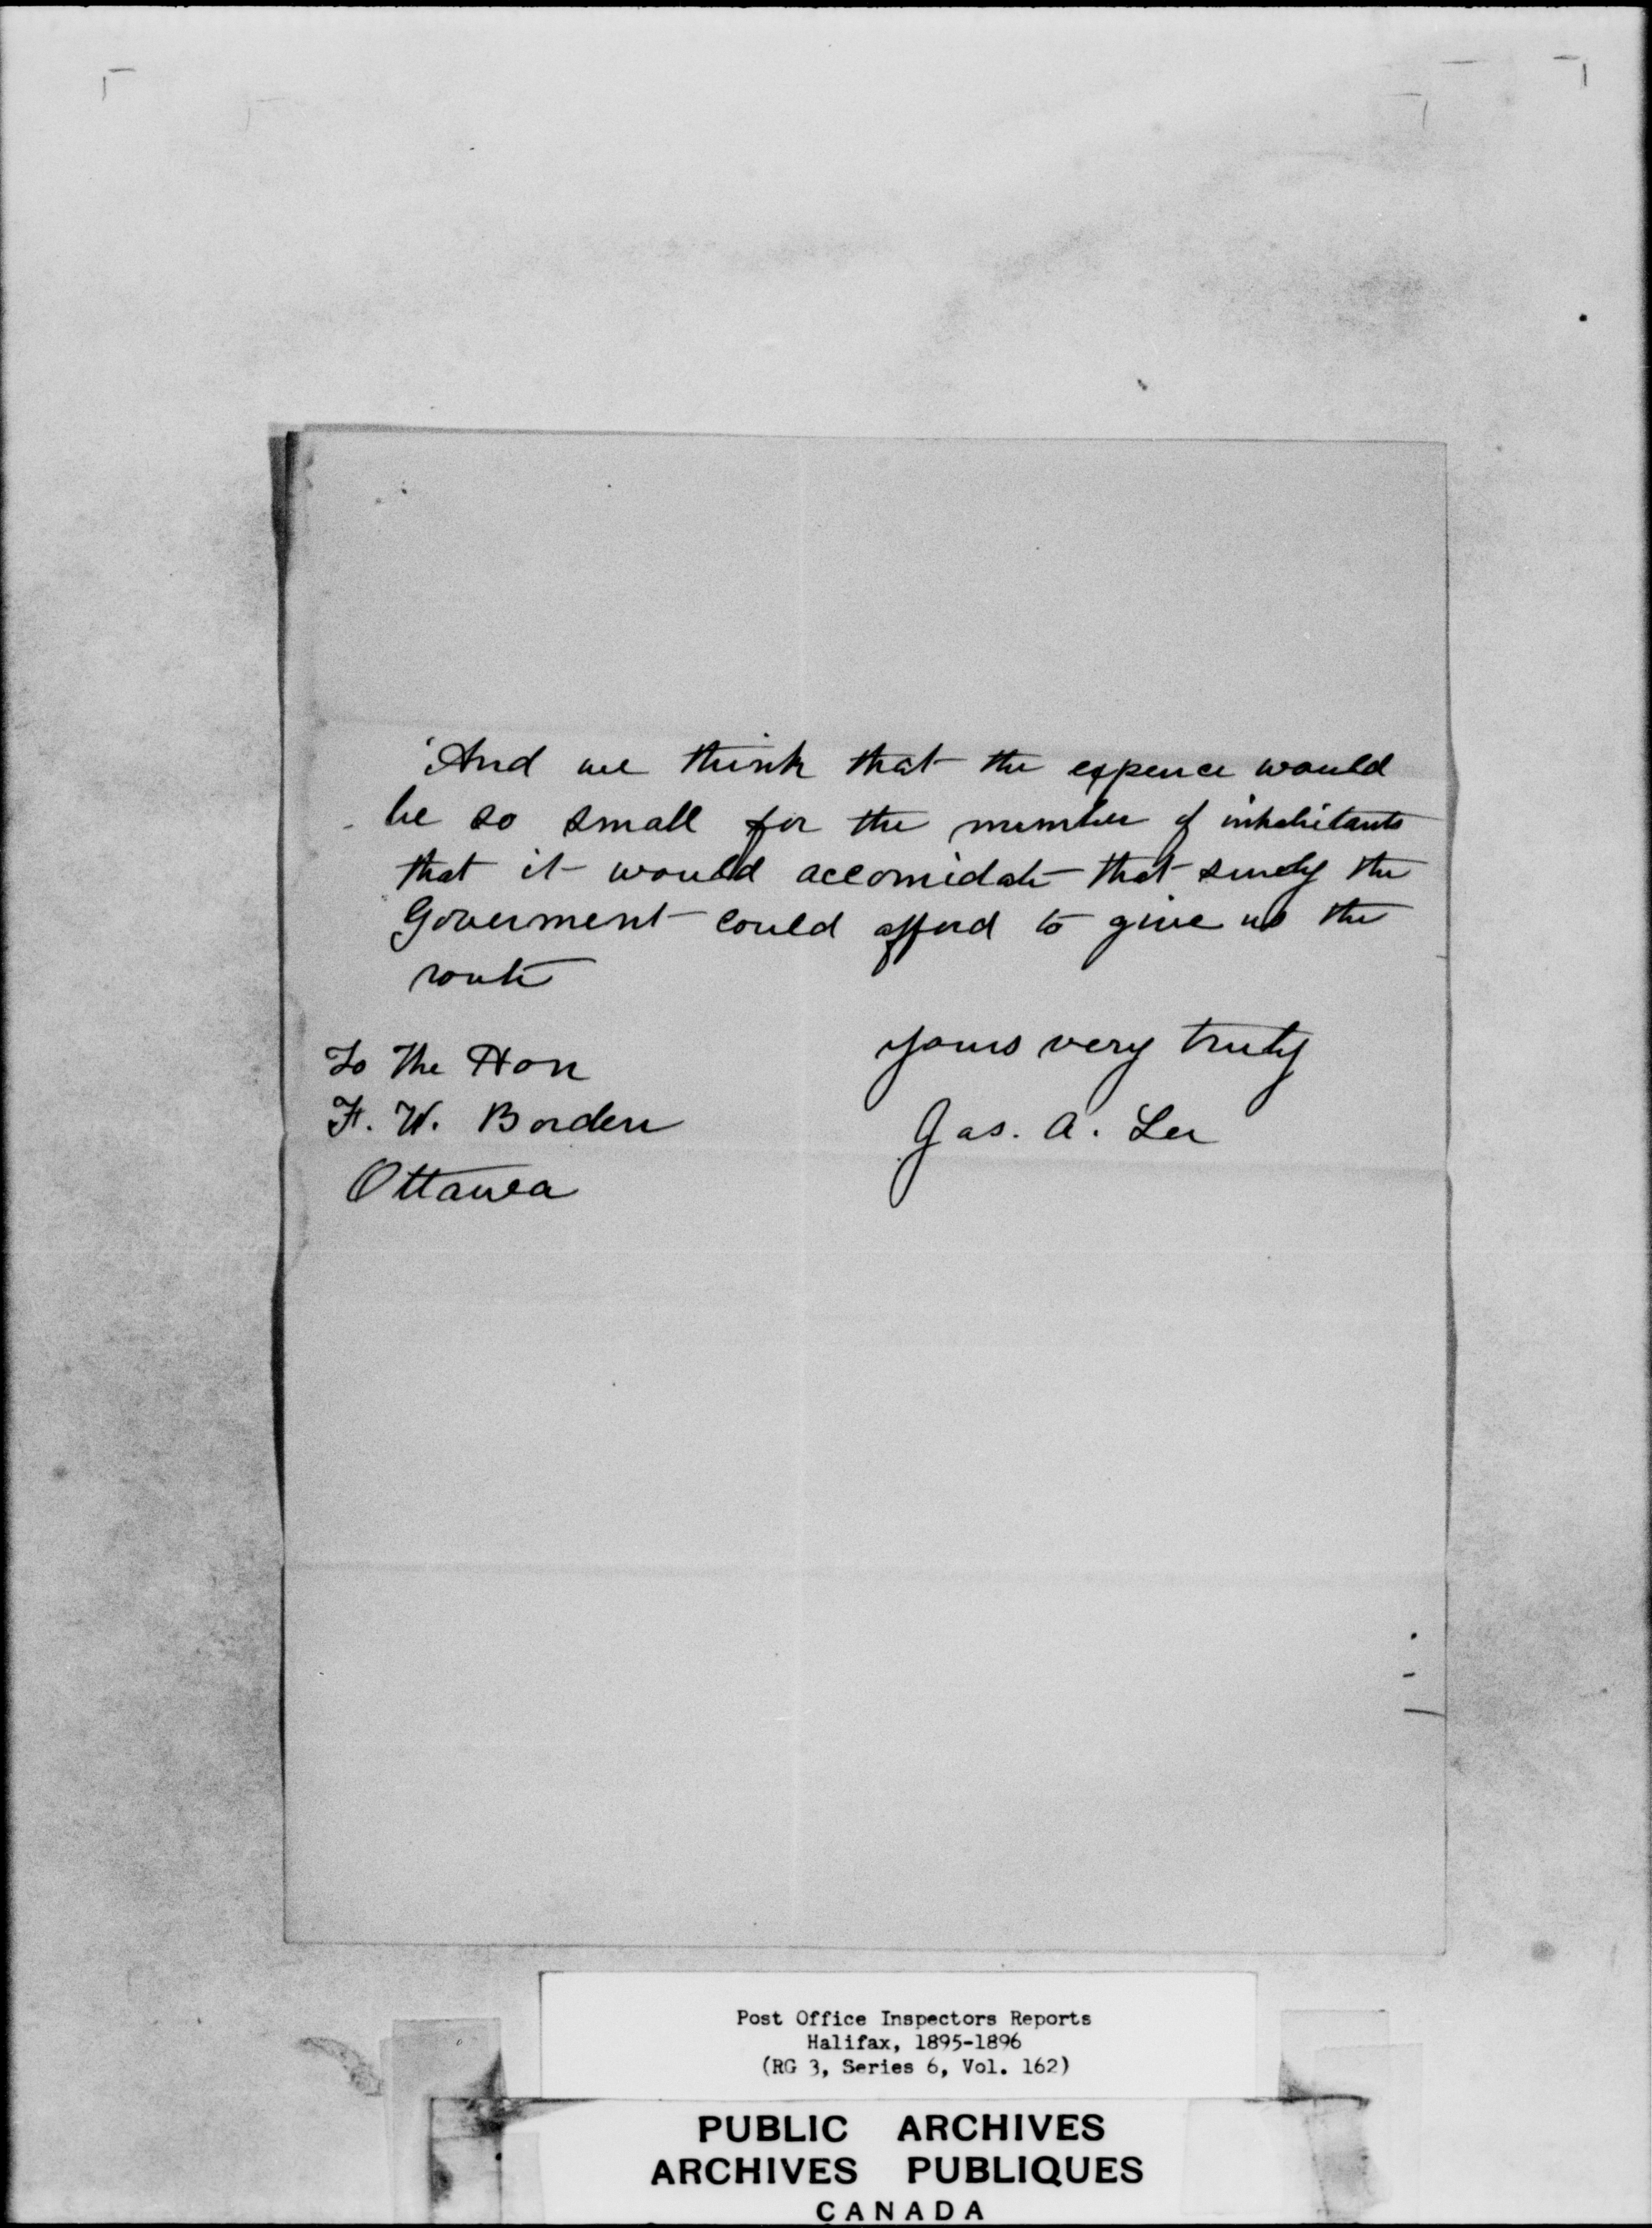 And we think that the expence would
be so small for the number of inhabitants
that it would accomidate that surely the
Goverment could afford to give us the
route
yours very truly
Jas. A. Lee
To The Hon
F. W. Borden
Ottawa
Post Office Inspectors Reports
Halifax, 1895-1896
(RG 3, Series 6, Vol. 162)
PUBLIC ARCHIVES
ARCHIVES PUBLIQUES
CANADA